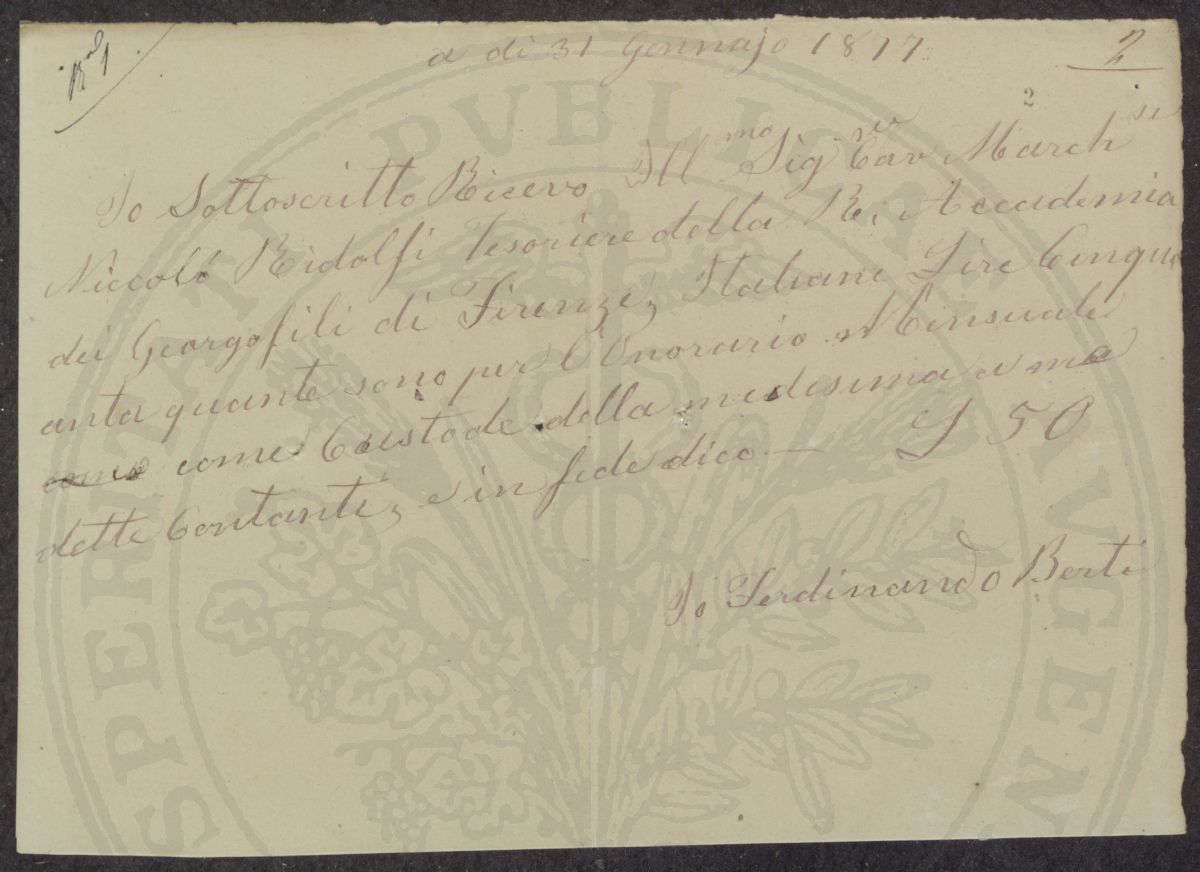 a di 31 Gennajo 1877
2
2
Io Sottoscritto Ricevo Ill mo Sig Cav re March se
Niccoló Ridolfi Tesoriere della R. Accademia
dei Georgofili di Firenze, Italiane Lire Cinqu
anta quante sono per l'Onorario Mensuale
come come Custode della medesima a me
dette Contanti, e in fede dico — L 50
Io Ferdinando Berti
PVBLICAE
PROSPERITATI
AVGEN